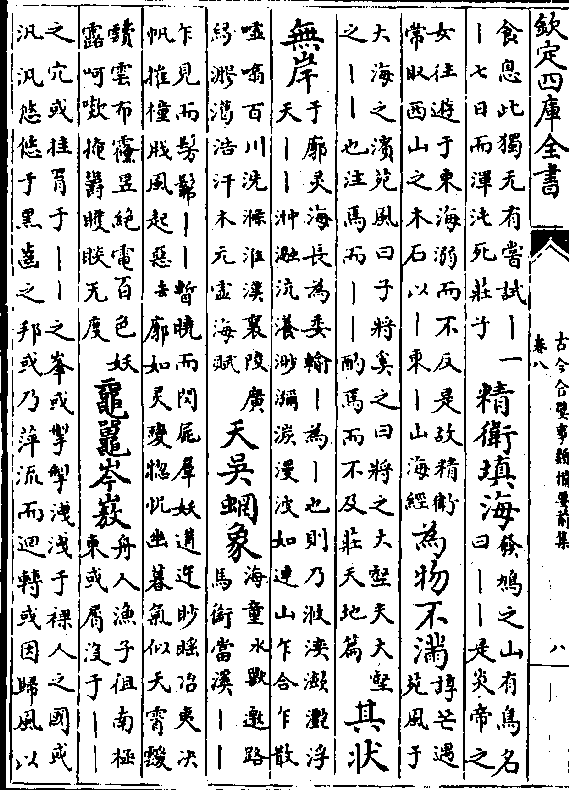 欽定四庫全書
古今合璧事類備要前集
卷八
八
食息此獨无有嘗試丨一
丨七日而渾沌死莊子
精衛填海
發鳩之山有鳥名
曰丨丨是炎帝之
女往遊于東海溺而不反是故精衛
常取西山之木石以丨東丨山海經
為物不滿
諄芒遇
苑風于
大海之濱苑風曰子將奚之曰將之大壑夫大壑
之丨丨也注焉而丨丨酌焉而不及莊天地篇
其状
無岸
于廓灵海長為委輸丨為丨也則乃浟湙瀲灩浮
天丨丨沖瀜沆瀁渺瀰湠漫波如連山乍合乍散
噓噏百川洗滌淮漢襄陵廣
舄㵧浩汗木元虛海賦
天吳蝄象
海童水獸邀路
馬銜當溪丨丨
乍見而髣髴丨丨暫曉而閃屍羣妖遘迕眇䁘冶夷决
帆摧橦戕風起惡去廓如灵變惚恍幽暮氣似天霄靉
靅雲布䨴昱絶電百色妖
露呵㰤掩鬱矆睒无度
黿鼉岑嶔
舟人漁子徂南極
東或屑沒于丨丨
之穴或挂罥于丨丨之峯或掣掣洩洩于裸人之國或
汎汎悠悠于黑齒之邦或乃萍流而迴轉或因歸風以